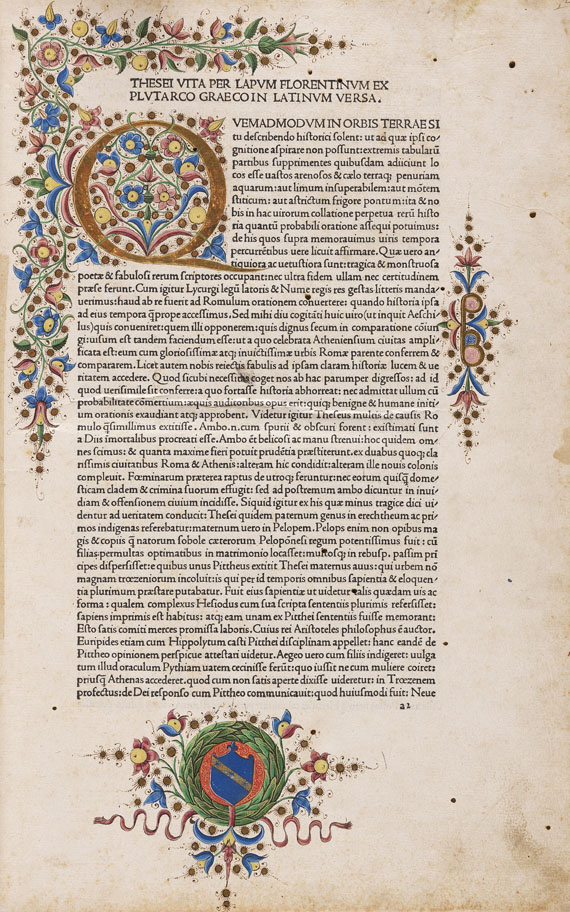 THESEI VITA PER LAPVM FLORENTINVM EX
PLVTARCO GRAECO IN LATINVM VERSA.
QVEMADMODVM IN ORBIS TERRAE SI
tu describendo historici solent: ut ad quæ ipsi co/
gnitione aspirare non possunt: extremis tabularū
partibus supprimentes quibusdam adiiciunt lo
cos esse uastos arenosos & cælo terraq; penuriam
aquarum: aut limum insuperabilem: aut mōtem
stiticum: aut astrictum frigore pontum: ita & no
bis in hac uirorum collatione perpetua rerū histo
ria quantū probabili oratione assequi potuimus:
de his quos supra memorauimus uiris tempora
percurrētibus uere licuit affirmare. Quæ uero an/
tiquiora ac uetustiora sunt: tragica & monstruosa
poetæ & fabulosi rerum scriptores occupant: nec ultra fidem ullam nec certitudinem
præse ferunt. Cum igitur Lycurgi legū latoris & Numæ regis res gestas litteris manda/
uerimus: haud ab re fuerit ad Romulum orationem cōuertere: quando historia ipsa
ad eius tempora q̄prope accessimus. Sed mihi diu cogitāti huic uiro (ut inquit Aeschi/
lus) quis conueniret: quem illi opponerem: quis dignus secum in comparatione cōiun
gi: uisum est tandem faciendum esse: ut a quo celebrata Atheniensium ciuitas ampli/
ficata est: eum cum gloriosissimæ atq; inuictissimæ urbis Romæ parente conferrem &
compararem. Licet autem nobis reiectis fabulis ad ipsam claram historiæ lucem & ue
ritatem accedere. Quod sicubi necessitas coget nos ab hac parumper digressos: ad id
quod uerisimile sit conferre: a quo fortasse historia abhorreat: nec admittat ullum cū
probabilitate comertium: æquis auditoribus opus erit: quiq; benigne & humane initi/
um orationis exaudiant atq; approbent. Videtur igitur Theseus multis de causis Ro
mulo q̄simillimus extitisse. Ambo.n.cum spurii & obscuri forent: existimati sunt
a Diis imortalibus procreati esse. Ambo ēt belicosi ac manu strenui: hoc quidem om/
nes scimus: & quanta maxime fieri potuit prudētia præstiterunt. ex duabus quoq; cla
rissimis ciuitatibus Roma & Athenis: alteram hic condidit: alteram ille nouis colonis
compleuit. Fœminarum præterea raptus de utroq; feruntur: nec eorum quisq̄ dome/
sticam cladem & crimina suorum effugit: sed ad postremum ambo dicuntur in inui/
diam & offensionem ciuium incidisse. Siquid igitur ex his quæ minus tragice dici ui/
dentur ad ueritatem conducit: Thesei quidem paternum genus in erechtheum ac pri/
mos indigenas referebatur: maternum uero in Pelopem. Pelops enim non opibus ma
gis & copiis q̄ natorum sobole cæterorum Pelopōnesi regum potentissimus fuit: cū
filias permultas optimatibus in matrimonio locasset: multosq; in rebusp. passim pri
cipes dispersisset: e quibus unus Pittheus extitit Thesei maternus auus: qui urbem nō
magnam trœzeniorum incoluit: is qui per id temporis omnibus sapientia & eloquen/
tia plurimum præstare putabatur. Fuit eius sapientiæ ut uidetur talis quædam uis ac
forma: qualem complexus Hesiodus cum sua scripta sententiis plurimis refersisset:
sapiens imprimis est habitus: atq; eam unam ex Pitthei sententiis fuisse memorant:
Esto satis comiti merces promissa laboris. Cuius rei Aristoteles philosophus ē auctor.
Euripides etiam cum Hippolytum casti Pitthei disciplinam appellet: hanc eandē de
Pittheo opinionem perspicue attestari uidetur. Aegeo uero cum filiis indigeret: uulga
tum illud oraculum Pythiam uatem cecinisse ferūt: quo iussit ne cum muliere coiret:
priusq̄ Athenas accederet. quod cum non satis aperte dixisse uideretur: in Trœzenem
profectus: de Dei responso cum Pittheo communicauit: quod huiusmodi fuit: Neue
a2